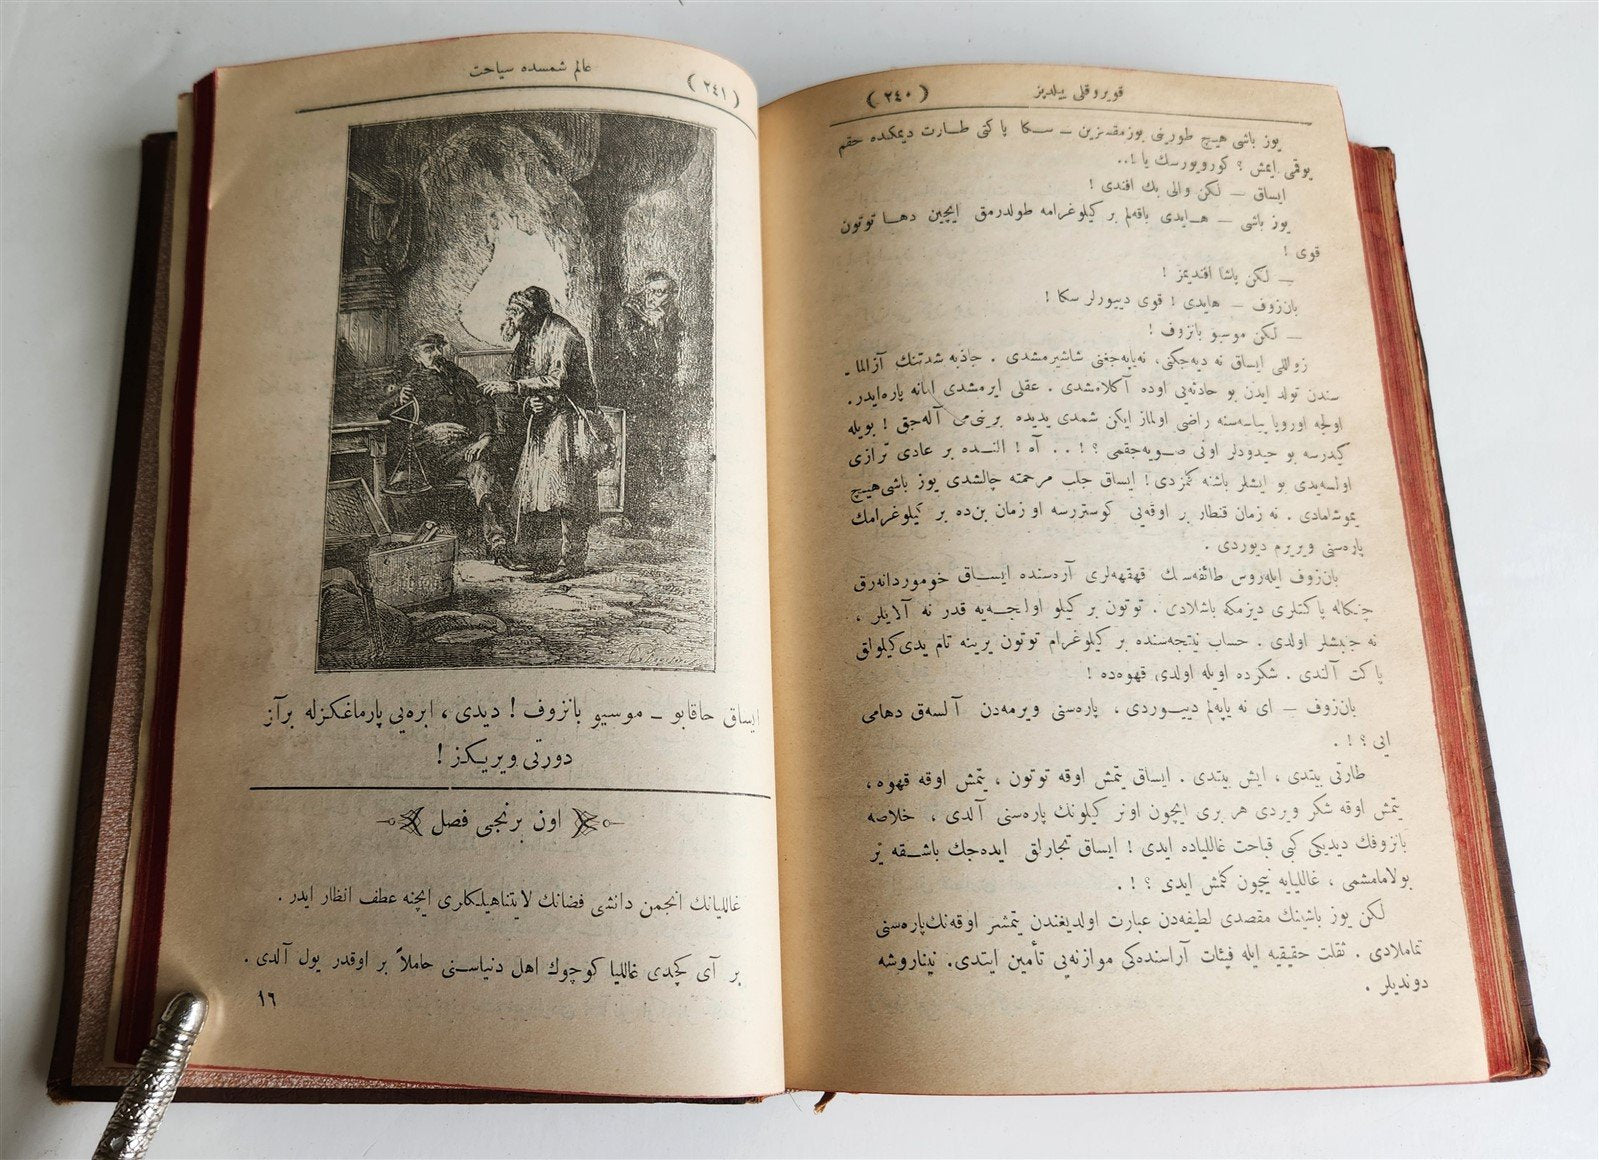 قويروقلى ييلديز
( ٢٤٠ )
يوز باشى هيچ طورينى بوزمقسزين ــ سكا پاكتى طارت ديمكده حقم
يوقمى ايمش ؟ كورويورسك يا !..
ايساق ــ لكن والى بك افندى !
يوز باشى ــ هايدى باقه‌لم بر كيلوغرامه طولدرمق ايچين دها توتون
قوى !
ــ لكن پاشا افنديمز !
بان‌زوف ــ هايدى ! قوى دييورلر سكا !
ــ لكن موسيو بانزوف !
زواللى ايساق نه ديه‌جكنى، نه‌ياپه‌جغنى شاشيرمشدى . جاذبه شدتنك آزالما ـ
سندن تولد ايدن بو حادثه‌يى اوده آكلامشدى . عقلى ايرمشدى امانه پاره‌ايدر.
اولجه اوروپا پياسه‌سنه راضى اولماز ايكن شمدى يديده برينى‌مى آله‌جق ! بويله
كيدرسه بو حيدودلر اونى صويه‌جقمى ؟ ! . . آه ! النده بر عادى ترازى
اولسه‌يدى بو ايشلر باشنه كلزدى ! ايساق جلب مرحمته چالشدى يوز باشى‌هيچ
يموشامادى . نه زمان قنطار بر اوقه‌يى كوستررسه او زمان بن‌ده بر كيلوغرامك
پاره‌سنى ويريرم ديوردى .
بان‌زوف ايله‌روس طائفه‌سنك قهقهه‌لرى آره‌سنده ايساق خوموردانه‌رق
چنكاله پاكتلرى ديزمكه باشلادى . توتون بر كيلو اولنجه‌يه قدر نه آلايلر ،
نه جنبشلر اولدى . حساب نتيجه‌سنده بر كيلوغرام توتون يرينه تام يدى‌كيلولق
پاكت آلندى . شكرده اويله اولدى قهوه‌ده !
بان‌زوف ــ اى نه ياپه‌لم دييوردى ، پاره‌سنى ويرمه‌دن آلسه‌ق دهامى
ايى ؟ ! .
طارتى بيتدى ، ايش بيتدى . ايساق يتمش اوقه توتون ، يتمش اوقه قهوه ،
يتمش اوقه شكر ويردى هر برى ايچون اونر كيلونك پاره‌سنى آلدى ، خلاصه
بانزوفك ديديكى كبى قباحت غالليا‌ده ايدى ! ايساق تجارلق ايده‌جك باشقه ير
بولامامشمى ، غالليايه نيچون كلمش ايدى ؟ ! .
لكن يوز باشينك مقصدى لطيفه‌دن عبارت اولديغندن يتمشر اوقه‌نك‌پاره‌سنى
تماملادى . ثقلت حقيقيه ايله فيئات آراسنده‌كى موازنه‌يى تأمين ايتدى. نيناروشه
دونديلر .
( ٢٤١ )
عالم شمسده سياحت
ايساق حاقابو ــ موسيو بانزوف ! ديدى ، ابره‌يى پارماغكزله برآز
دورتى ويريكز !
اون برنجى فصل
غالليانك انجمن دانشى فضانك لايتناهيلكلرى ايچنه عطف انظار ايدر .
بر آى كچدى غالليا كوچوك اهل دنياسنى حاملاً بر اوقدر يول آلدى .
١٦